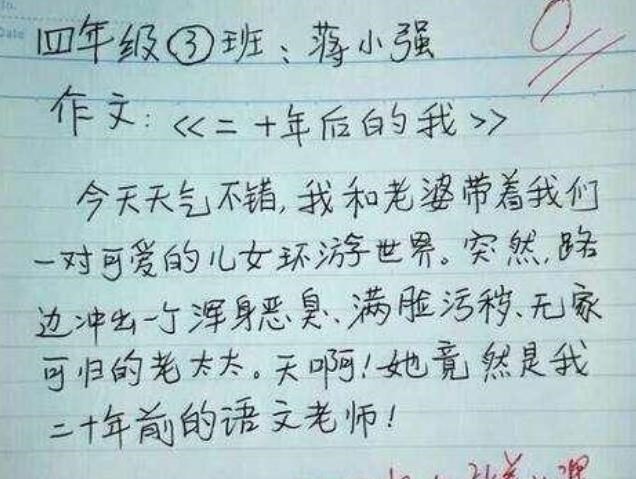 四年级③班：蒋小强
作文：《二十年后的我》
今天天气不错，我和老婆带着我们
一对可爱的儿女环游世界。突然，路
边冲出一个浑身恶臭、满脸污秽、无家
可归的老太太。天啊！她竟然是我
二十年前的语文老师！
0